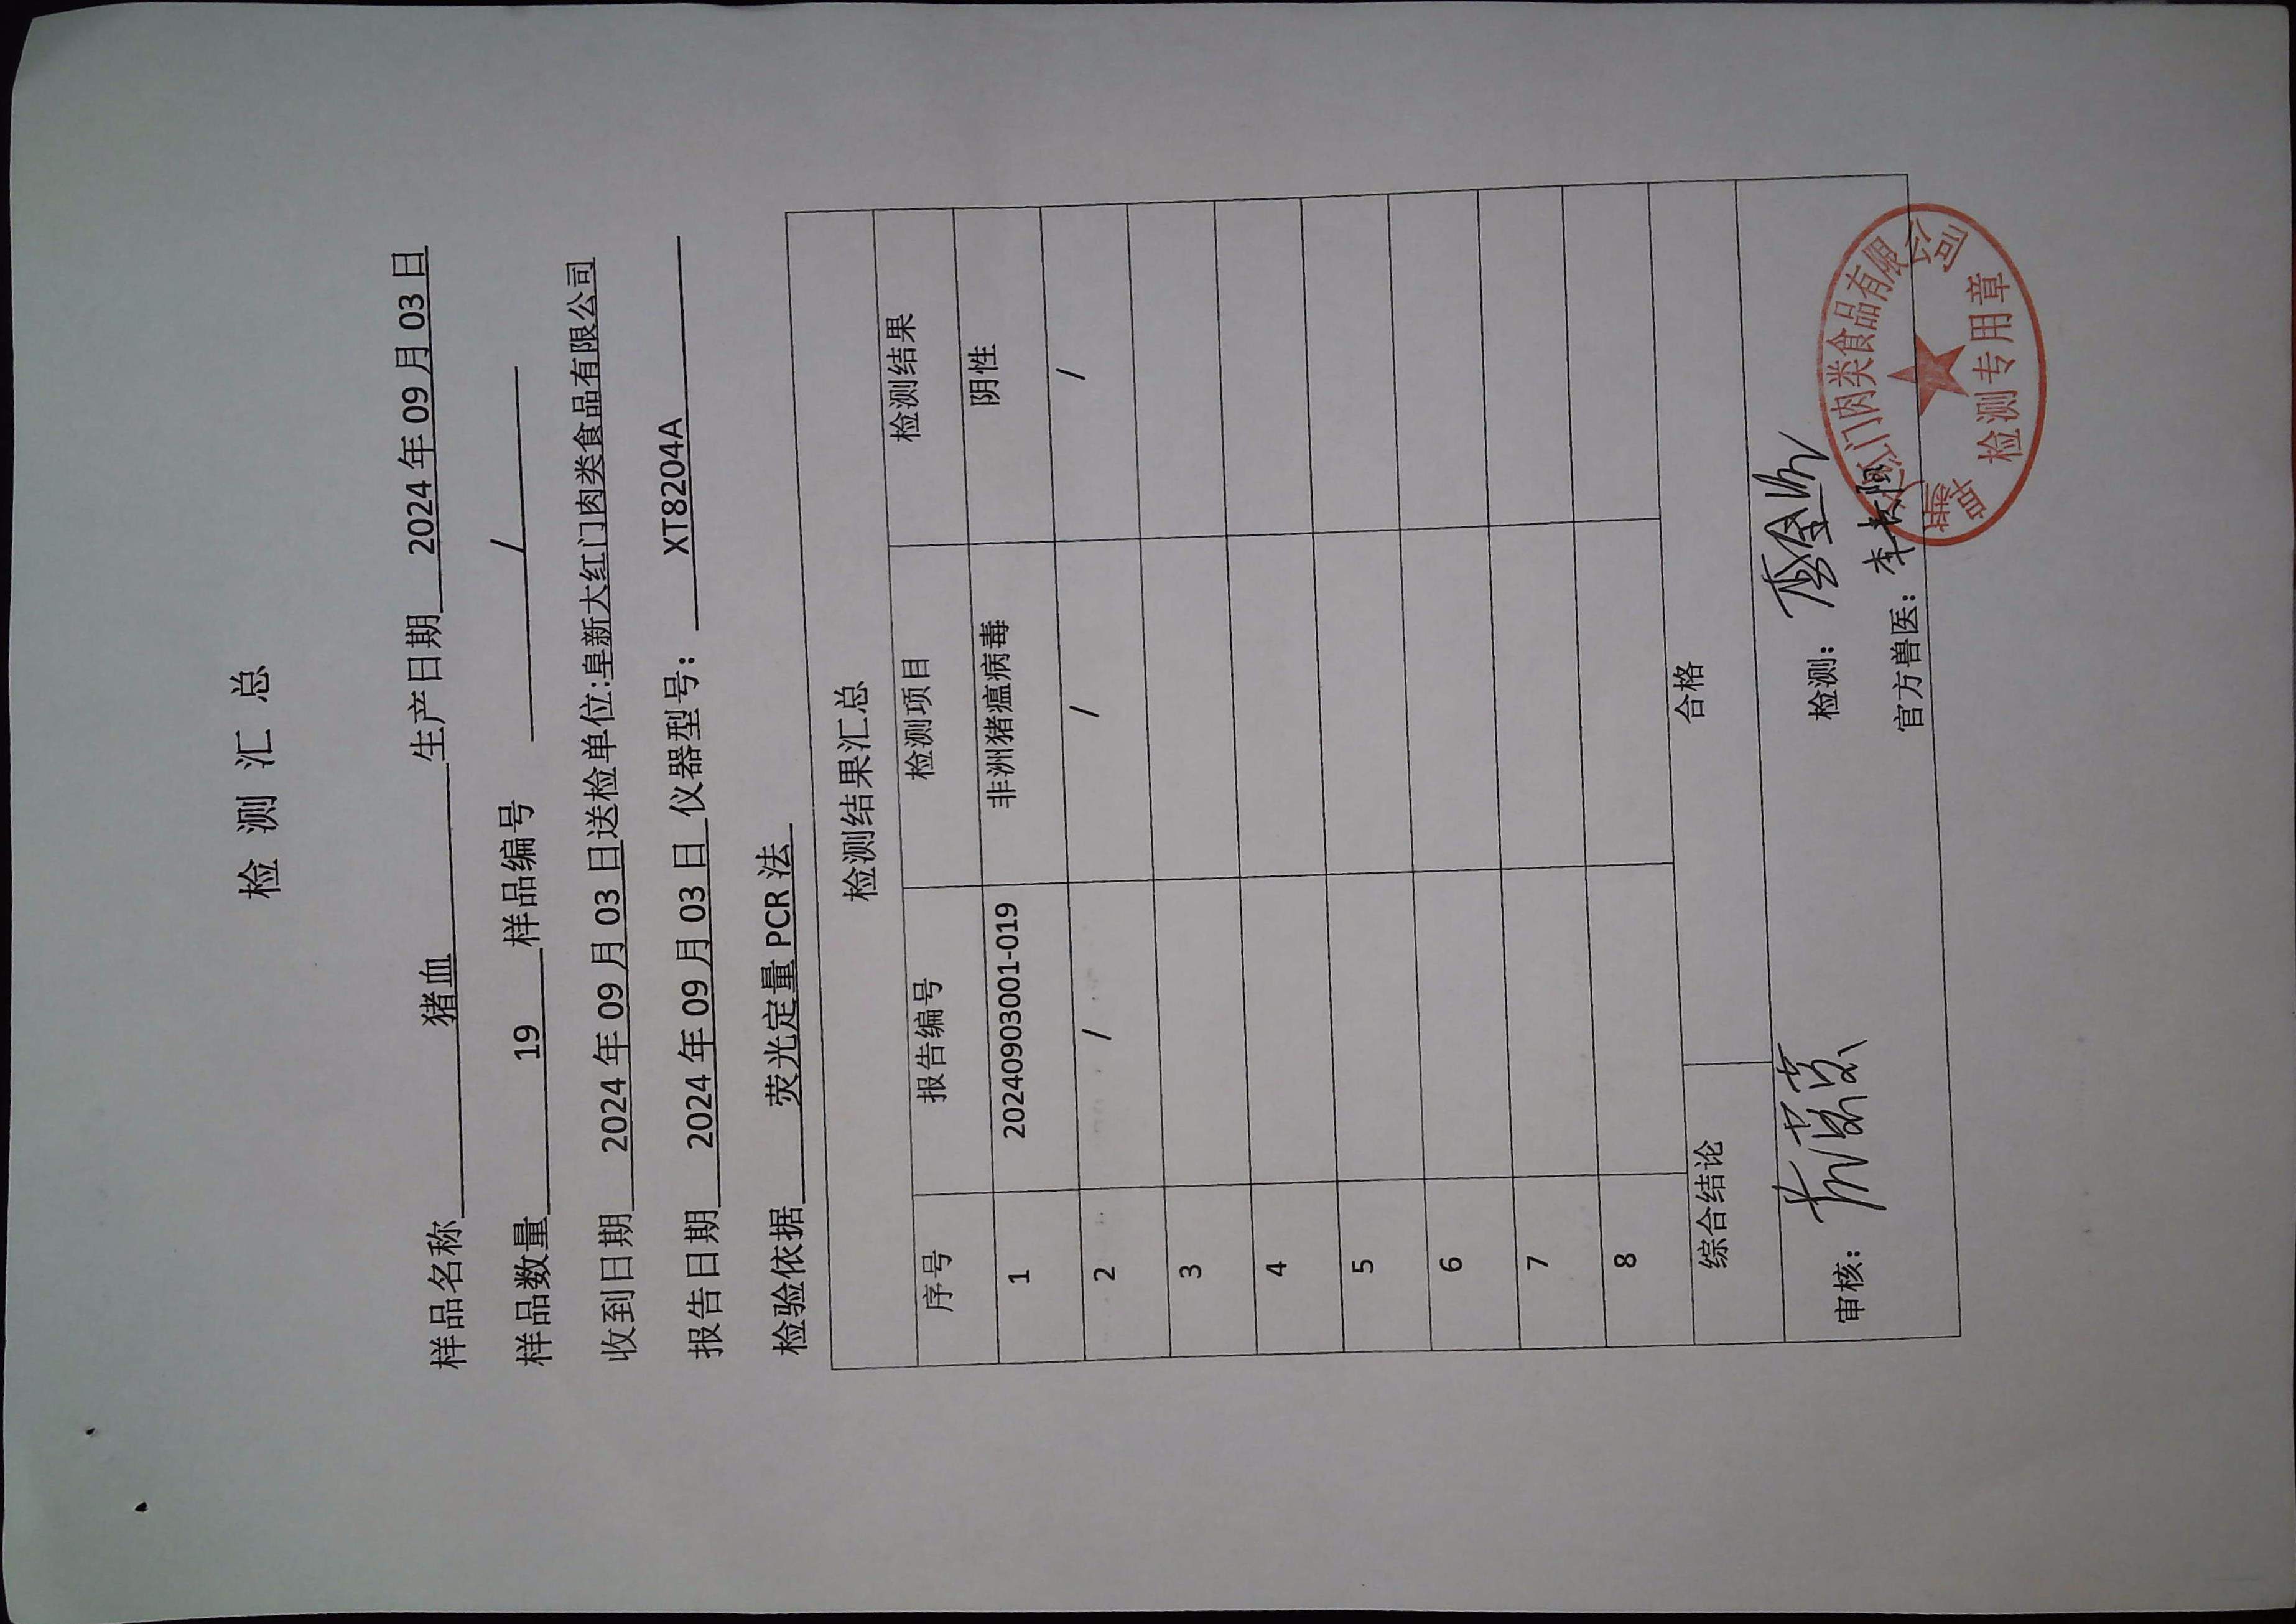 检 测 汇 总
样品名称 猪血 生产日期 2024 年 09 月 03 日
样品数量 19 样品编号 /
收到日期 2024 年 09 月 03 日送检单位:阜新大红门肉类食品有限公司
报告日期 2024 年 09 月 03 日 仪器型号: XT8204A
检验依据 荧光定量 PCR 法
检测结果汇总
序号 报告编号 检测项目 检测结果
1 20240903001-019 非洲猪瘟病毒 阴性
2 / / /
3
4
5
6
7
8
综合结论 合格
审核: 检测:
官方兽医: 李
阜新大红门肉类食品有限公司
检测专用章